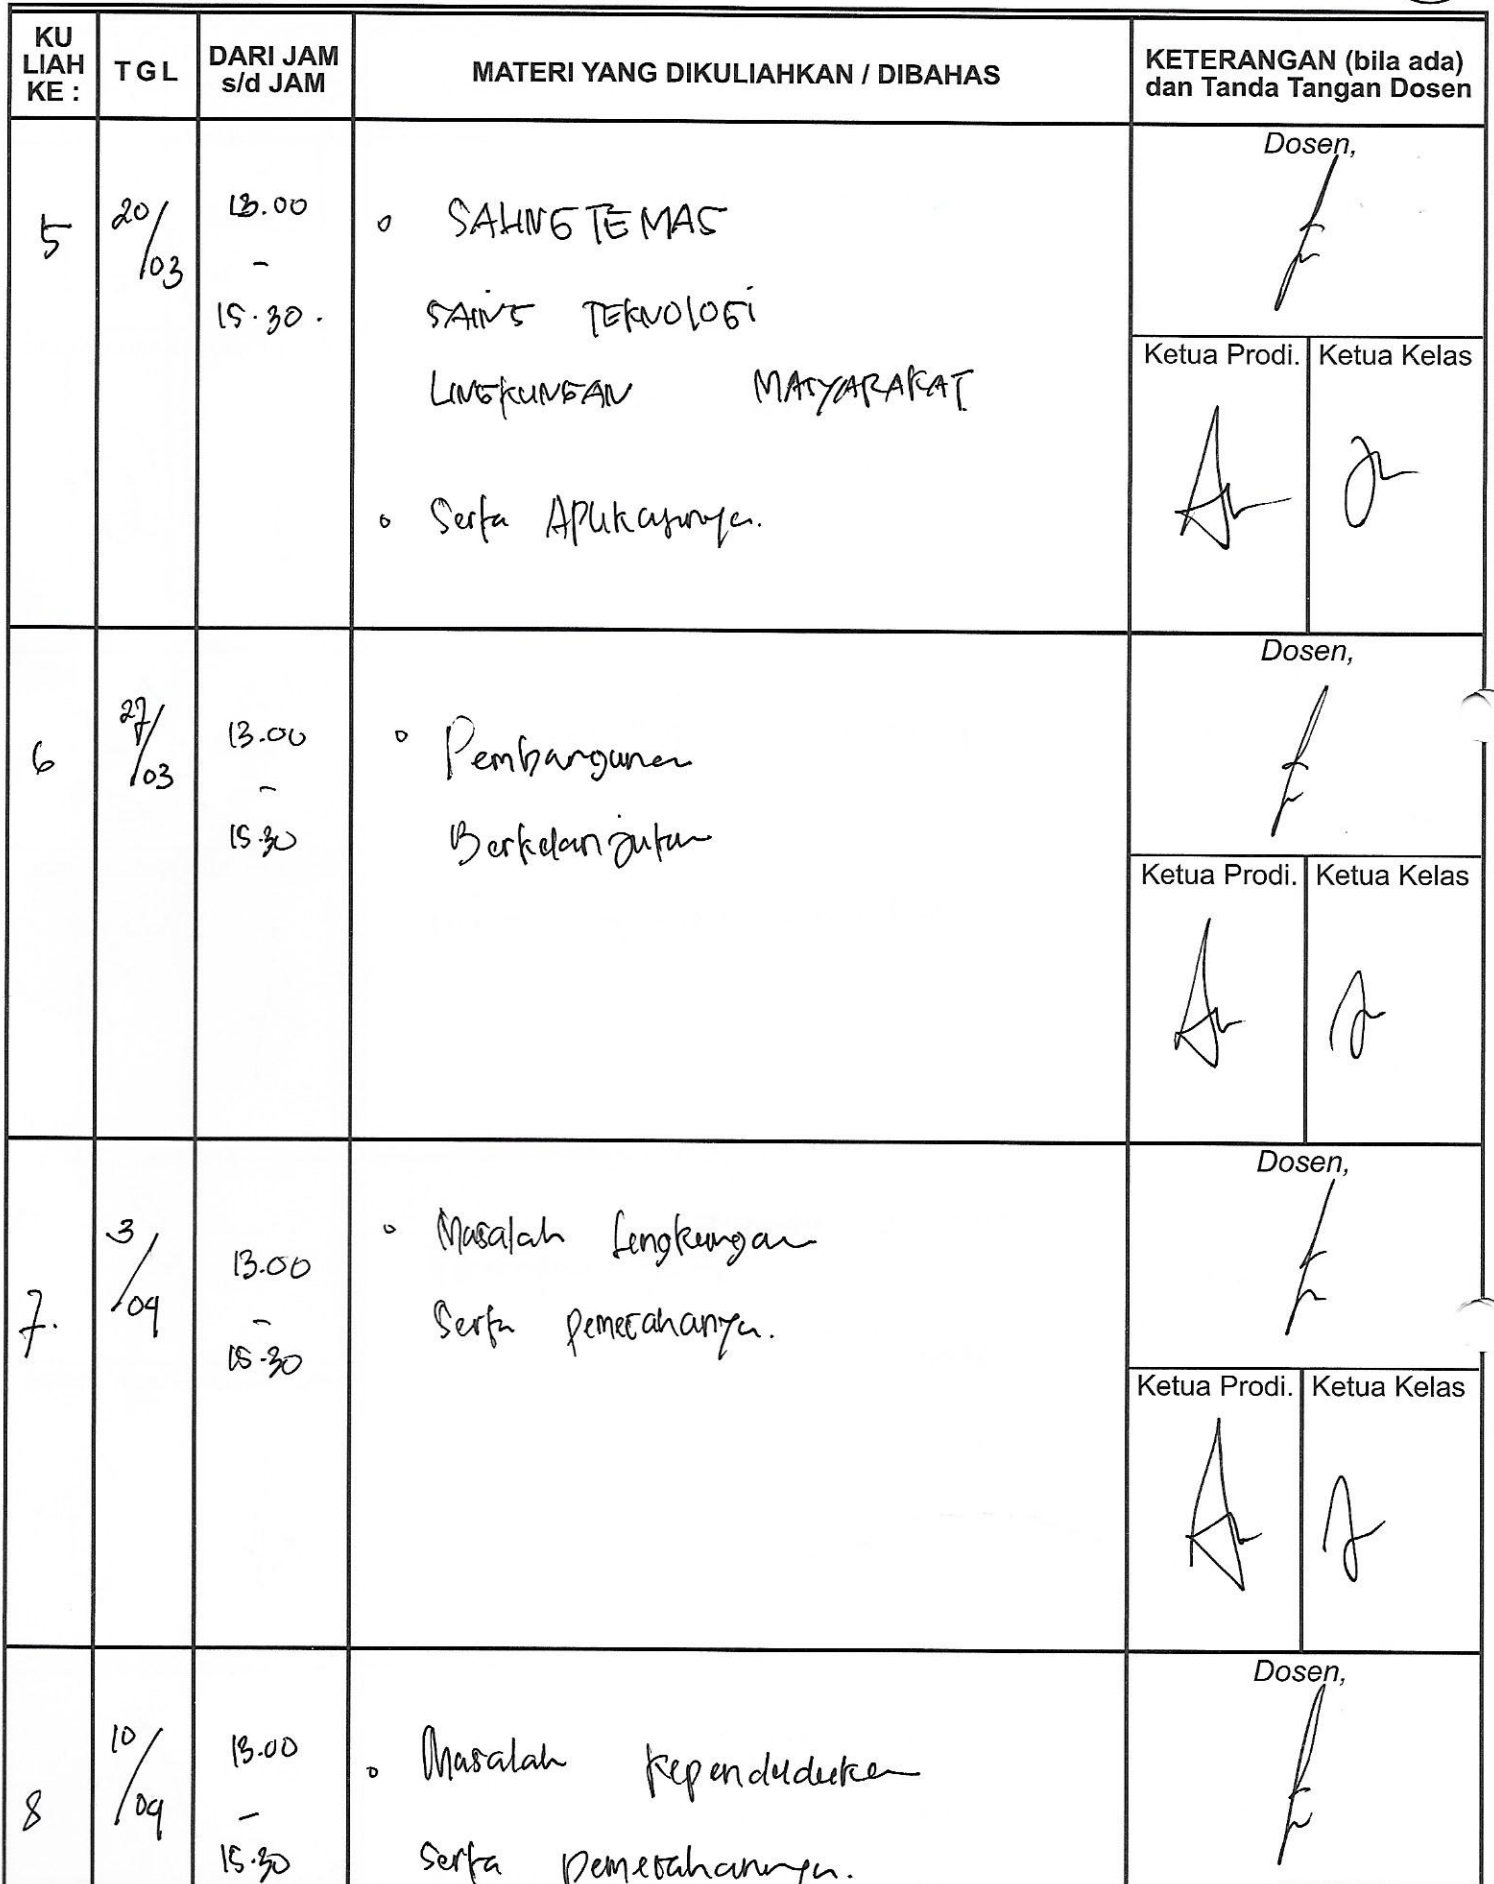 KU LIAH KE : TGL DARI JAM s/d JAM MATERI YANG DIKULIAHKAN / DIBAHAS KETERANGAN (bila ada) dan Tanda Tangan Dosen
Dosen,
5 20/03 13.00 - 15.30.
° SALINGTEMAS
SAINS TEKNOLOGI
LINGKUNGAN MASYARAKAT
° Serta Aplikasinya.
Ketua Prodi. Ketua Kelas
Dosen,
6 27/03 13.00 - 15.30
° Pembangunan
Berkelanjutan
Ketua Prodi. Ketua Kelas
Dosen,
7. 3/04 13.00 - 15.30
° Masalah Lengkungan
Serta pemecahanya.
Ketua Prodi. Ketua Kelas
Dosen,
8 10/04 13.00 - 15.30
° Masalah Kependudukan
Serta pemecahannya.